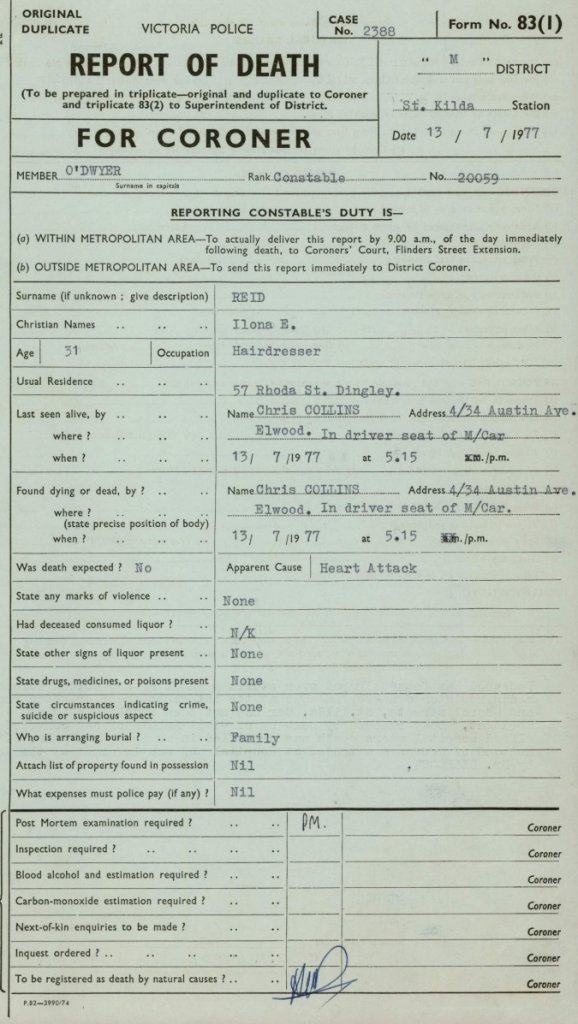 ORIGINAL
DUPLICATE
VICTORIA POLICE
CASE
No. 2388
Form No. 83(1)
REPORT OF DEATH
(To be prepared in triplicate—original and duplicate to Coroner
and triplicate 83(2) to Superintendent of District.
FOR CORONER
" M " DISTRICT
St. Kilda Station
Date 13 / 7 / 1977
MEMBER O'DWYER Rank Constable No. 20059
Surname in capitals
REPORTING CONSTABLE'S DUTY IS—
(a) WITHIN METROPOLITAN AREA—To actually deliver this report by 9.00 a.m., of the day immediately
following death, to Coroners' Court, Flinders Street Extension.
(b) OUTSIDE METROPOLITAN AREA—To send this report immediately to District Coroner.
Surname (if unknown ; give description) REID
Christian Names .. .. .. Ilona E.
Age 31 Occupation Hairdresser
Usual Residence .. .. .. 57 Rhoda St. Dingley.
Last seen alive, by .. .. .. Name Chris COLLINS Address 4/34 Austin Ave.
where ? .. .. Elwood. In driver seat of M/Car
when ? .. .. .. 13/ 7 /1977 at 5.15 a.m./p.m.
Found dying or dead, by ? .. .. Name Chris COLLINS Address 4/34 Austin Ave.
where ? .. .. Elwood. In driver seat of M/Car.
(state precise position of body)
when ? .. .. .. 13/ 7 /1977 at 5.15 a.m./p.m.
Was death expected ? No Apparent Cause Heart Attack
State any marks of violence .. .. None
Had deceased consumed liquor ? .. N/K
State other signs of liquor present .. None
State drugs, medicines, or poisons present None
State circumstances indicating crime,
suicide or suspicious aspect None
Who is arranging burial ? .. .. Family
Attach list of property found in possession Nil
What expenses must police pay (if any) ? Nil
Post Mortem examination required ? .. .. PM. Coroner
Inspection required ? .. .. .. .. Coroner
Blood alcohol and estimation required ? .. .. Coroner
Carbon-monoxide estimation required ? .. .. Coroner
Next-of-kin enquiries to be made ? .. .. Coroner
Inquest ordered ? .. .. .. .. .. Coroner
To be registered as death by natural causes ? .. .. Coroner
P.82—3990/74